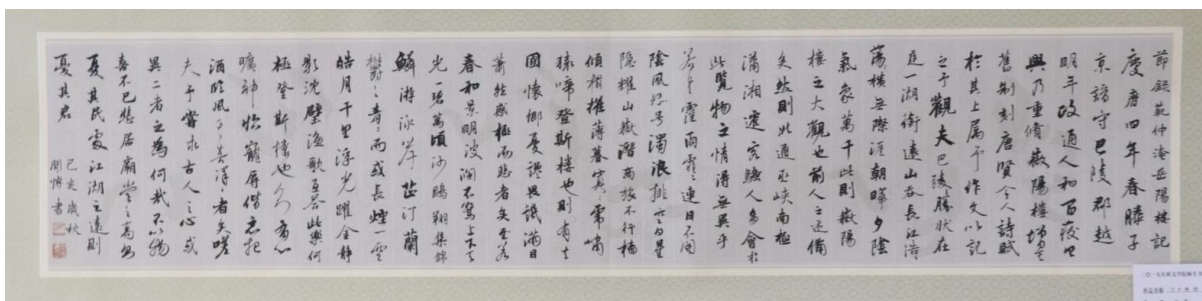 節録範仲淹岳陽樓記
慶曆四年春滕子
京謫守巴陵郡越
明年政通人和百廢
興乃重脩嶽陽樓增其
舊制刻唐賢今人詩賦
於其上屬予作文以記
之予觀夫巴陵勝狀在
庭一湖銜遠山吞長江浩
蕩橫無際涯朝暉夕陰
氣象萬千此則嶽陽
樓之大觀也前人之述備
矣然則北通巫峽南極
瀟湘遷客騷人多會於
此覽物之情得無異乎
若夫霪雨霏霏連日不開
陰風怒号濁浪排空日星
隱耀山嶽潛商旅不行檣
傾楫摧薄暮冥冥嘯
猿啼登斯樓也則有去
國懷鄉憂讒畏譏滿目
蕭然感極而悲者矣至若
春和景明波瀾不驚上下天
光一碧萬頃沙鷗翔集錦
鱗游泳岸芷汀蘭
鬱鬱青青而或長煙一空
皓月千里浮光躍金靜
影沈璧漁歌互荅此樂何
極登斯樓也則有心
曠神怡寵辱偕忘把
酒臨風其喜洋洋者矣嗟
夫予嘗求古人之心或
異二者之為何哉不以物
喜不已悲居廟堂之高則
憂其民處江湖之遠則
憂其君
己亥歲秋
書
二〇一九年秋文学院师生书